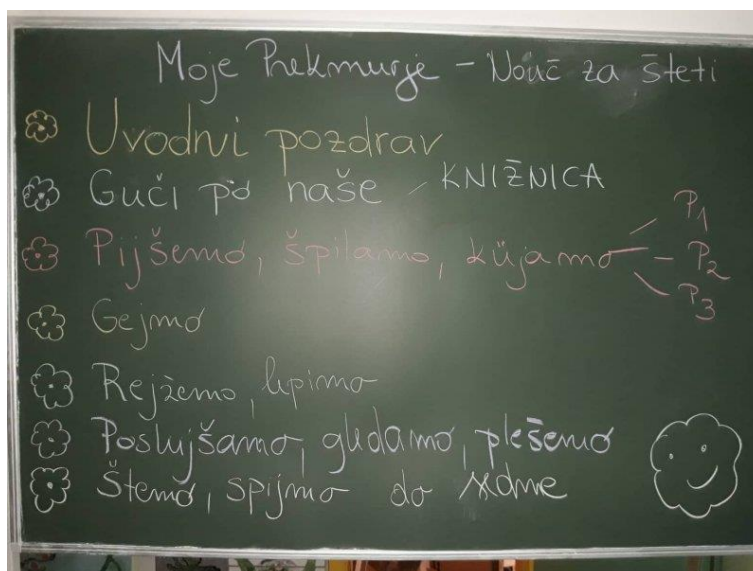 Moje Prekmurje - Nouč za šteti
Uvodni pozdrav
Guči po naše - KNIŽNICA
Pijšemo, špilamo, küjamo - P1
- P2
P3
Gejmo
Rejžemo, lepimo
Poslujšamo, gledamo, plešemo
Štemo, spijmo do sedme